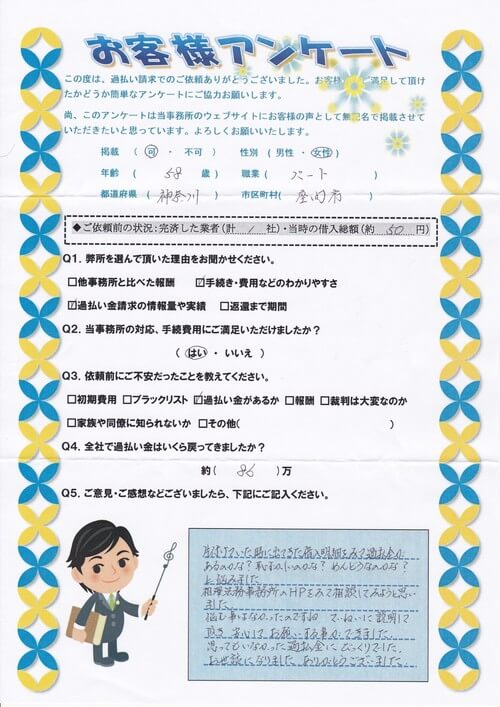 お客様アンケート
この度は、過払い請求でのご依頼ありがとうございました。お客様 ご満足して頂け
たかどうか簡単なアンケートにご協力お願いします。
尚、このアンケートは当事務所のウェブサイトにお客様の声として無記名で掲載させて
いただきたいと思っています。よろしくお願いいたします。
掲載 ( 可 ・ 不可 ) 性別 ( 男性 ・ 女性 )
年齢 ( 58 歳 ) 職業 ( パート )
都道府県 ( 神奈川 ) 市区町村 ( 座間市 )
◆ご依頼前の状況:完済した業者(計 1 社)・当時の借入総額(約 50 円)
Q1. 弊所を選んで頂いた理由をお聞かせください。
□他事務所と比べた報酬 ☑手続き・費用などのわかりやすさ
☑過払い金請求の情報量や実績 □返還まで期間
Q2. 当事務所の対応、手続費用にご満足いただけましたか?
( はい ・ いいえ )
Q3. 依頼前にご不安だったことを教えてください。
□初期費用 □ブラックリスト ☑過払い金があるか □報酬 □裁判は大変なのか
□家族や同僚に知られないか □その他( )
Q4. 全社で過払い金はいくら戻ってきましたか?
約( 86 )万
Q5. ご意見・ご感想などございましたら、下記にご記入ください。
片づけていた時に出てきた借入明細をみて過払金が
あるのかな?恥ずかしいのかな?めんどうなのかな?
と悩みました
相理法務事務所のHPをみて相談してみようと思い
ました。
悩む事はなかったのですね ていねいに説明して
頂き 安心して お願いする事ができました。
思ってもいなかった過払金に びっくりでした。
お世話になりました ありがとうございました